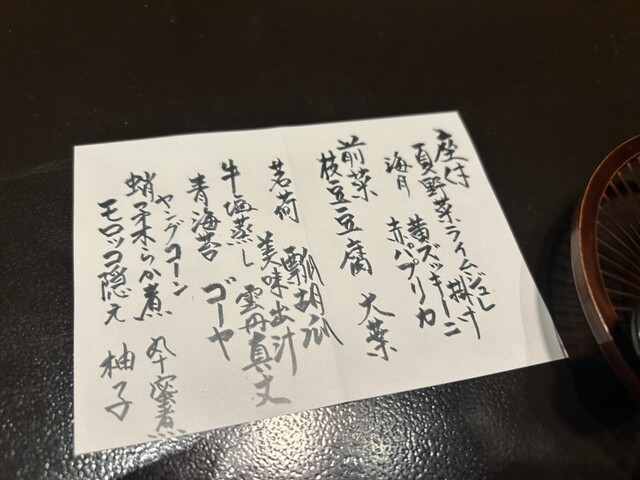 座付
夏野菜ライムジュレ掛け
海月 黄ズッキーニ
赤パプリカ
前菜
枝豆豆腐 大葉
瓢胡瓜
茗荷 美味出汁
牛塩蒸し 雲丹真丈
青海苔 ゴーヤ
ヤングコーン
蛸柔らか煮 蜜煮
モロッコ隠元 柚子